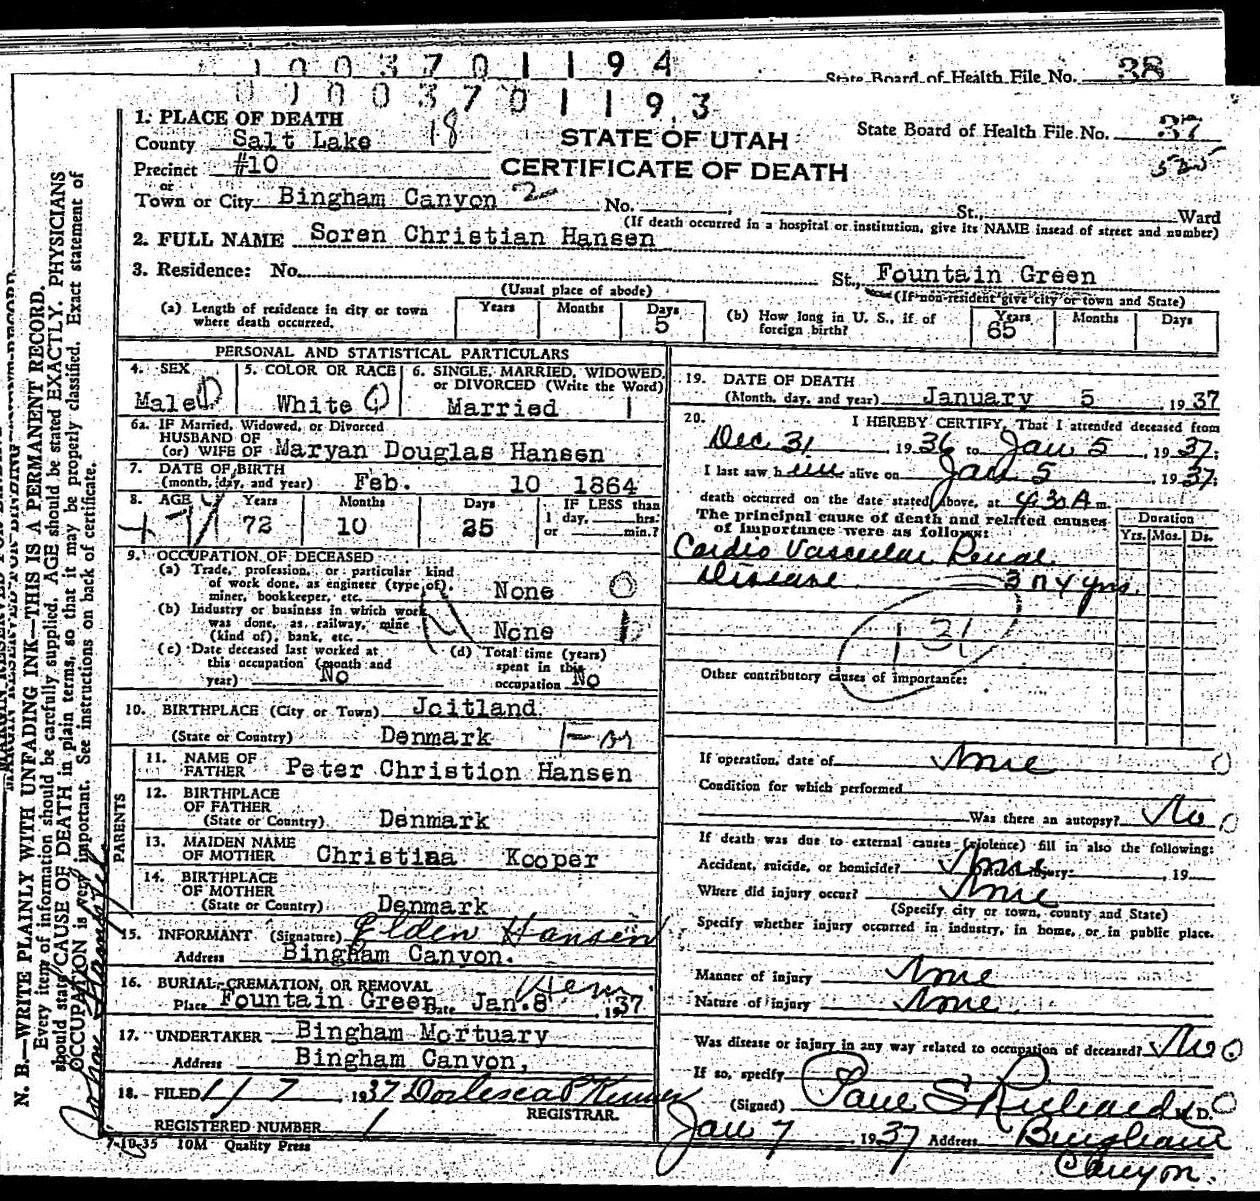 1 0 0 3 7 0 1 1 9 4
State Board of Health File No. 38
0 0 0 3 7 0 1 1 9 3
1. PLACE OF DEATH
County Salt Lake 18
STATE OF UTAH
State Board of Health File No. 37
Precinct #10
CERTIFICATE OF DEATH
525
or
Town or City Bingham Canyon 2 No. St., Ward
(If death occurred in a hospital or institution, give its NAME insead of street and number)
2. FULL NAME Soren Christian Hansen
3. Residence: No. St., Fountain Green
(Usual place of abode) (If non-resident give city or town and State)
(a) Length of residence in city or town where death occurred. Years Months Days 5
(b) How long in U. S., if of foreign birth? Years 65 Months Days
PERSONAL AND STATISTICAL PARTICULARS
4. SEX Male
5. COLOR OR RACE White
6. SINGLE, MARRIED, WIDOWED, or DIVORCED (Write the Word) Married 1
6a. IF Married, Widowed, or Divorced
HUSBAND OF
(or) WIFE OF Maryan Douglas Hansen
7. DATE OF BIRTH
(month, day, and year) Feb. 10 1864
8. AGE Years 72 Months 10 Days 25 IF LESS than 1 day, hrs. or min.?
9. OCCUPATION OF DECEASED
(a) Trade, profession, or particular kind
of work done, as engineer (type of),
miner, bookkeeper, etc. None 0
(b) Industry or business in which work
was done, as railway, mine
(kind of), bank, etc. None
(c) Date deceased last worked at
this occupation (month and
year) No
(d) Total time (years)
spent in this
occupation No
10. BIRTHPLACE (City or Town) Joitland
(State or Country) Denmark
PARENTS
11. NAME OF
FATHER Peter Christion Hansen
12. BIRTHPLACE
OF FATHER
(State or Country) Denmark
13. MAIDEN NAME
OF MOTHER Christina Kooper
14. BIRTHPLACE
OF MOTHER
(State or Country) Denmark
15. INFORMANT (Signature) Elden Hansen
Address Bingham Canyon.
16. BURIAL, CREMATION, OR REMOVAL Rem
Place Fountain Green Date Jan. 8 1937
17. UNDERTAKER Bingham Mortuary
Address Bingham Canyon,
18. FILED 1/7 1937
REGISTRAR.
REGISTERED NUMBER 1
7-10-35 10M Quality Press
19. DATE OF DEATH
(Month, day, and year) January 5 1937
20. I HEREBY CERTIFY, That I attended deceased from
Dec 31, 1936 to Jan 5, 1937;
I last saw him alive on Jan 5, 1937;
death occurred on the date stated above, at 4:30 A m.
The principal cause of death and related causes
of importance were as follows:
Duration
Yrs. Mos. Ds.
Cardio Vascular Renal
Disease 3 or 4 yrs.
131
Other contributory causes of importance:
If operation, date of None
Condition for which performed
Was there an autopsy? No
If death was due to external causes (violence) fill in also the following:
Accident, suicide, or homicide? None injury: , 19
Where did injury occur? None
(Specify city or town, county and State)
Specify whether injury occurred in industry, in home, or in public place.
Manner of injury None
Nature of injury None
Was disease or injury in any way related to occupation of deceased? No
If so, specify
(Signed) Paul S Richards M.D.
Jan 7, 1937 Address Bingham
Canyon.
N. B.—WRITE PLAINLY WITH UNFADING INK—THIS IS A PERMANENT RECORD.
Every item of information should be carefully supplied. AGE should be stated EXACTLY. PHYSICIANS
should state CAUSE OF DEATH in plain terms, so that it may be properly classified. Exact statement of
OCCUPATION is very important. See instructions on back of certificate.